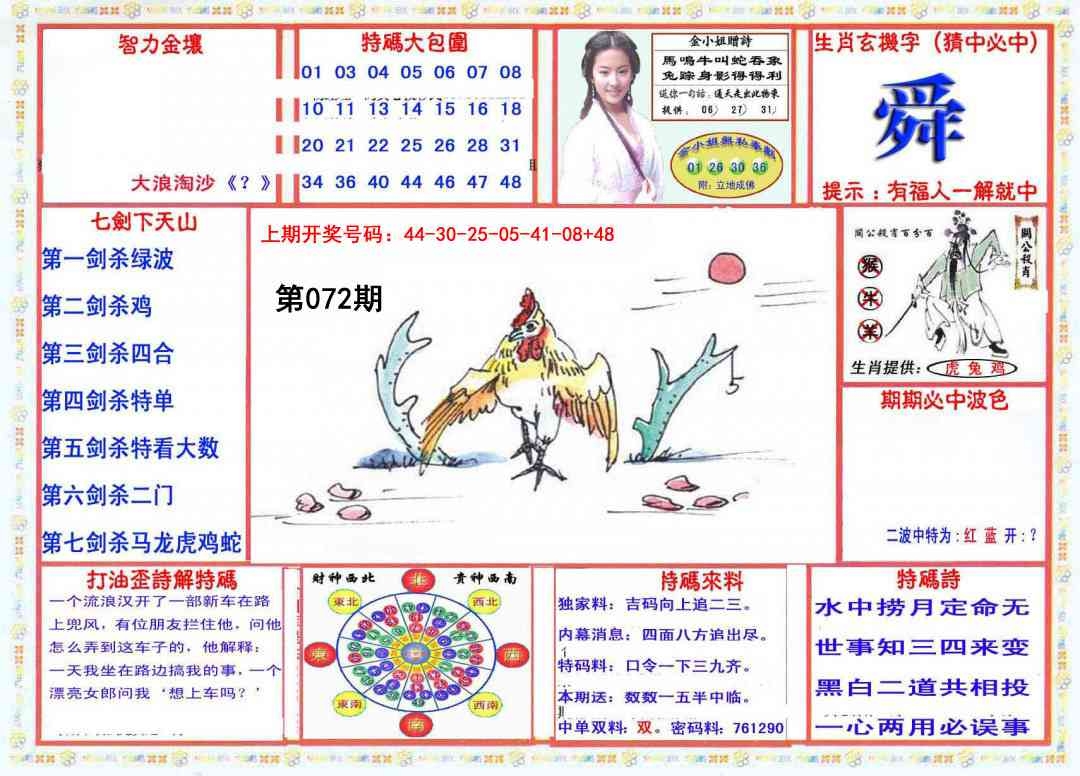 智力金壤
大浪淘沙《？》
特碼大包圍
01 03 04 05 06 07 08
10 11 13 14 15 16 18
20 21 22 25 26 28 31
34 36 40 44 46 47 48
金小姐贈詩
馬鳴牛叫蛇吞象
兔踪身影得得利
送你一句話，通天走出此物來
提供： 06） 27） 31）
金小姐無私奉獻
01 26 30 36
附：立地成佛
生肖玄機字（猜中必中）
舜
提示：有福人一解就中
七劍下天山
第一剑杀绿波
第二剑杀鸡
第三剑杀四合
第四剑杀特单
第五剑杀特看大数
第六剑杀二门
第七剑杀马龙虎鸡蛇
上期开奖号码：44-30-25-05-41-08+48
第072期
關公殺肖百分百
關公殺肖
猴
牛
羊
生肖提供：虎 兔 鸡
期期必中波色
二波中特为：红 蓝 开：？
打油歪詩解特碼
一个流浪汉开了一部新车在路
上兜风，有位朋友拦住他，问他
怎么弄到这车子的，他解释：
一天我坐在路边搞我的事，一个
漂亮女郎问我‘想上车吗？’
财神西北
貴神西南
北
東北
西北
東
西
東南
西南
南
特碼來料
独家料：吉码向上追二三。
内幕消息：四面八方追出尽。
特码料：口令一下三九齐。
本期送：数数一五半中临。
中单双料：双。密码料：761290
特碼詩
水中捞月定命无
世事知三四来变
黑白二道共相投
一心两用必误事